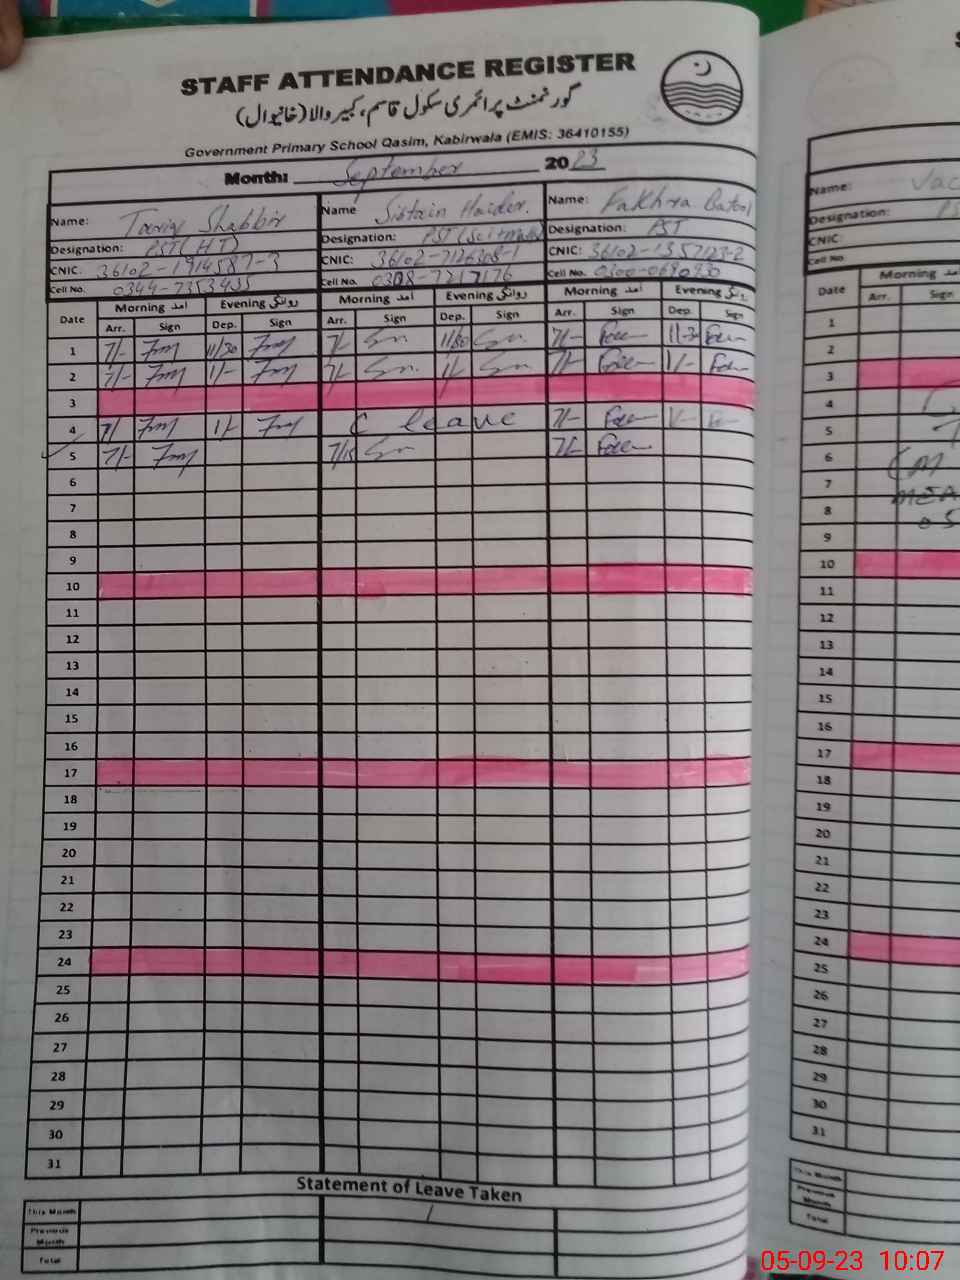 STAFF ATTENDANCE REGISTER
گورنمنٹ پرائمری سکول قاسم، کبیر والا (خانیوال)
Government Primary School Qasim, Kabirwala (EMIS: 36410155)
Month: September 2023
Name: Tariq Shabbir Name Sibtain Haider. Name: Fakhra Batool
Designation: PST (HT) Designation: PST (Sci+Math) Designation: PST
CNIC: 36102-1914587-3 CNIC: 36102-7126308-1 CNIC: 36102-1357123-2
Cell No. 0344-7353435 Cell No. 0308-7217176 Cell No. 0300-0690930
Date Morning آمد Evening روانگی Morning آمد Evening روانگی Morning آمد Evening روانگی
Arr. Sign Dep. Sign Arr. Sign Dep. Sign Arr. Sign Dep. Sign
1 7/- 11/30 7/- 11/30 7/- 11-30
2 7/- 11/- 7/- 11/- 7/- 11/-
3
4 7/- 11/- C leave 7/- 11/-
5 7/- 7/15 7/-
6
7
8
9
10
11
12
13
14
15
16
17
18
19
20
21
22
23
24
25
26
27
28
29
30
31
Statement of Leave Taken
This Month 1
Previous Month
Total
Name:
Designation:
CNIC:
Cell No.
Date Morning آمد
Arr. Sign
1
2
3
4
5
6
7
8
9
10
11
12
13
14
15
16
17
18
19
20
21
22
23
24
25
26
27
28
29
30
31
MEA
05
This Month
Previous Month
Total
05-09-23 10:07